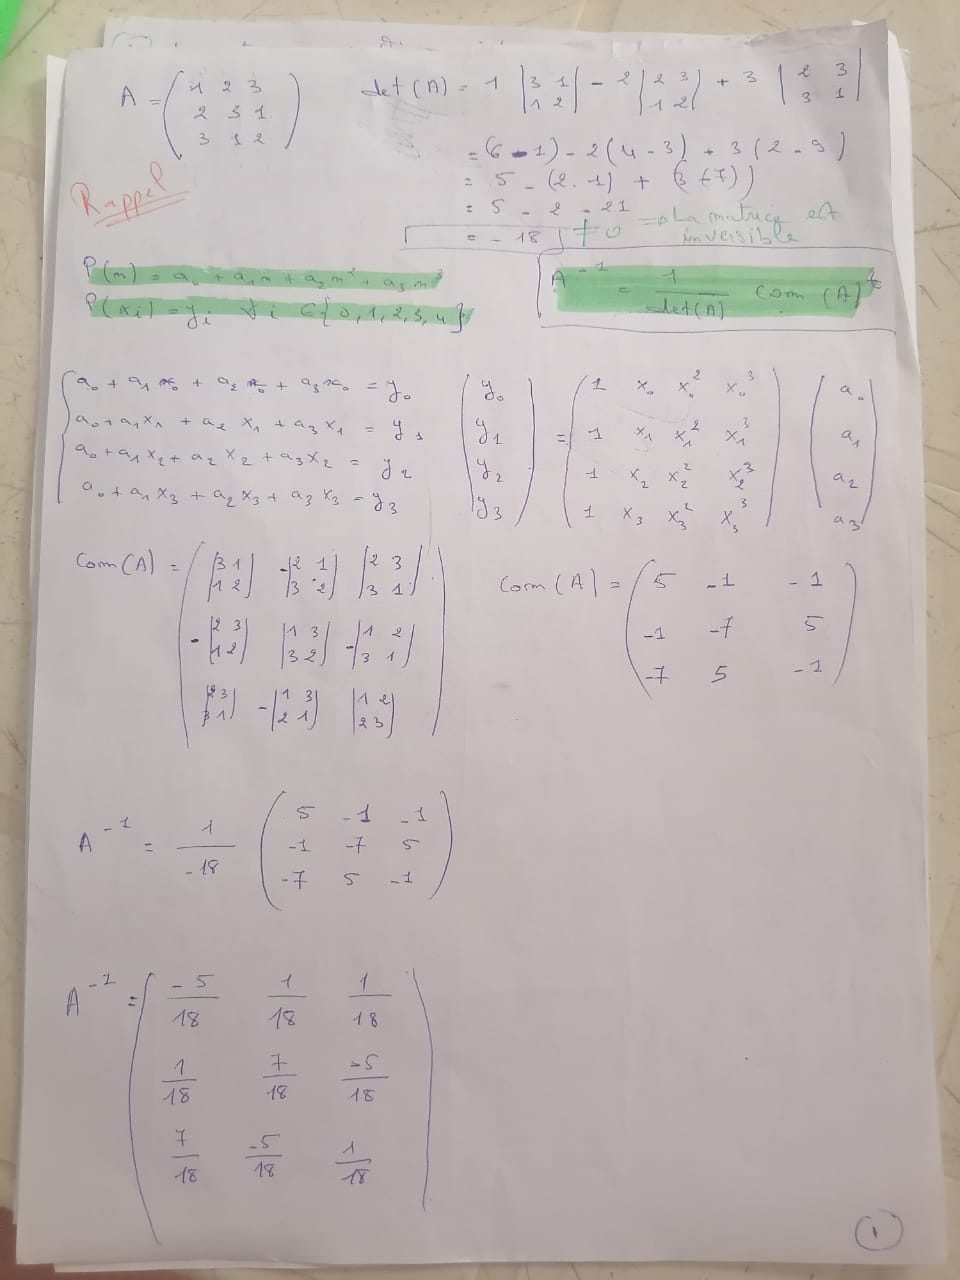 A = ( 1 2 3
2 3 1
3 1 2 )
det(A) = 1 |3 1 / 1 2| - 2 |2 3 / 1 2| + 3 |2 3 / 3 1|
= (6 - 1) - 2(4 - 3) + 3(2 - 9)
= 5 - (2.1) + (3(-7))
= 5 - 2 - 21
= - 18 ≠ 0 => La matrice est
inversible
Rappel
P(n) = a₀ + a₁n + a₂n² + a₃n³
P(xi) = yi ∀i ∈ {0,1,2,3,4}
A⁻¹ = 1/det(A) com(A)ᵗ
a₀ + a₁x₀ + a₂x₀ + a₃x₀ = y₀
a₀ + a₁x₁ + a₂x₁ + a₃x₁ = y₁
a₀ + a₁x₂ + a₂x₂ + a₃x₂ = y₂
a₀ + a₁x₃ + a₂x₃ + a₃x₃ = y₃
( y₀ ) = ( 1 x₀ x₀² x₀³ ) ( a₀ )
( y₁ ) ( 1 x₁ x₁² x₁³ ) ( a₁ )
( y₂ ) ( 1 x₂ x₂² x₂³ ) ( a₂ )
( y₃ ) ( 1 x₃ x₃² x₃³ ) ( a₃ )
Com(A) = ( |3 1 / 1 2| -|2 1 / 3 2| |2 3 / 3 1|
-|2 3 / 1 2| |1 3 / 3 2| -|1 2 / 3 1|
|2 3 / 3 1| -|1 3 / 2 1| |1 2 / 2 3| )
Com(A) = ( 5 -1 -1
-1 -7 5
-7 5 -1 )
A⁻¹ = 1/-18 ( 5 -1 -1
-1 -7 5
-7 5 -1 )
A⁻¹ = ( -5/18 1/18 1/18
1/18 7/18 -5/18
7/18 -5/18 1/18 )
1